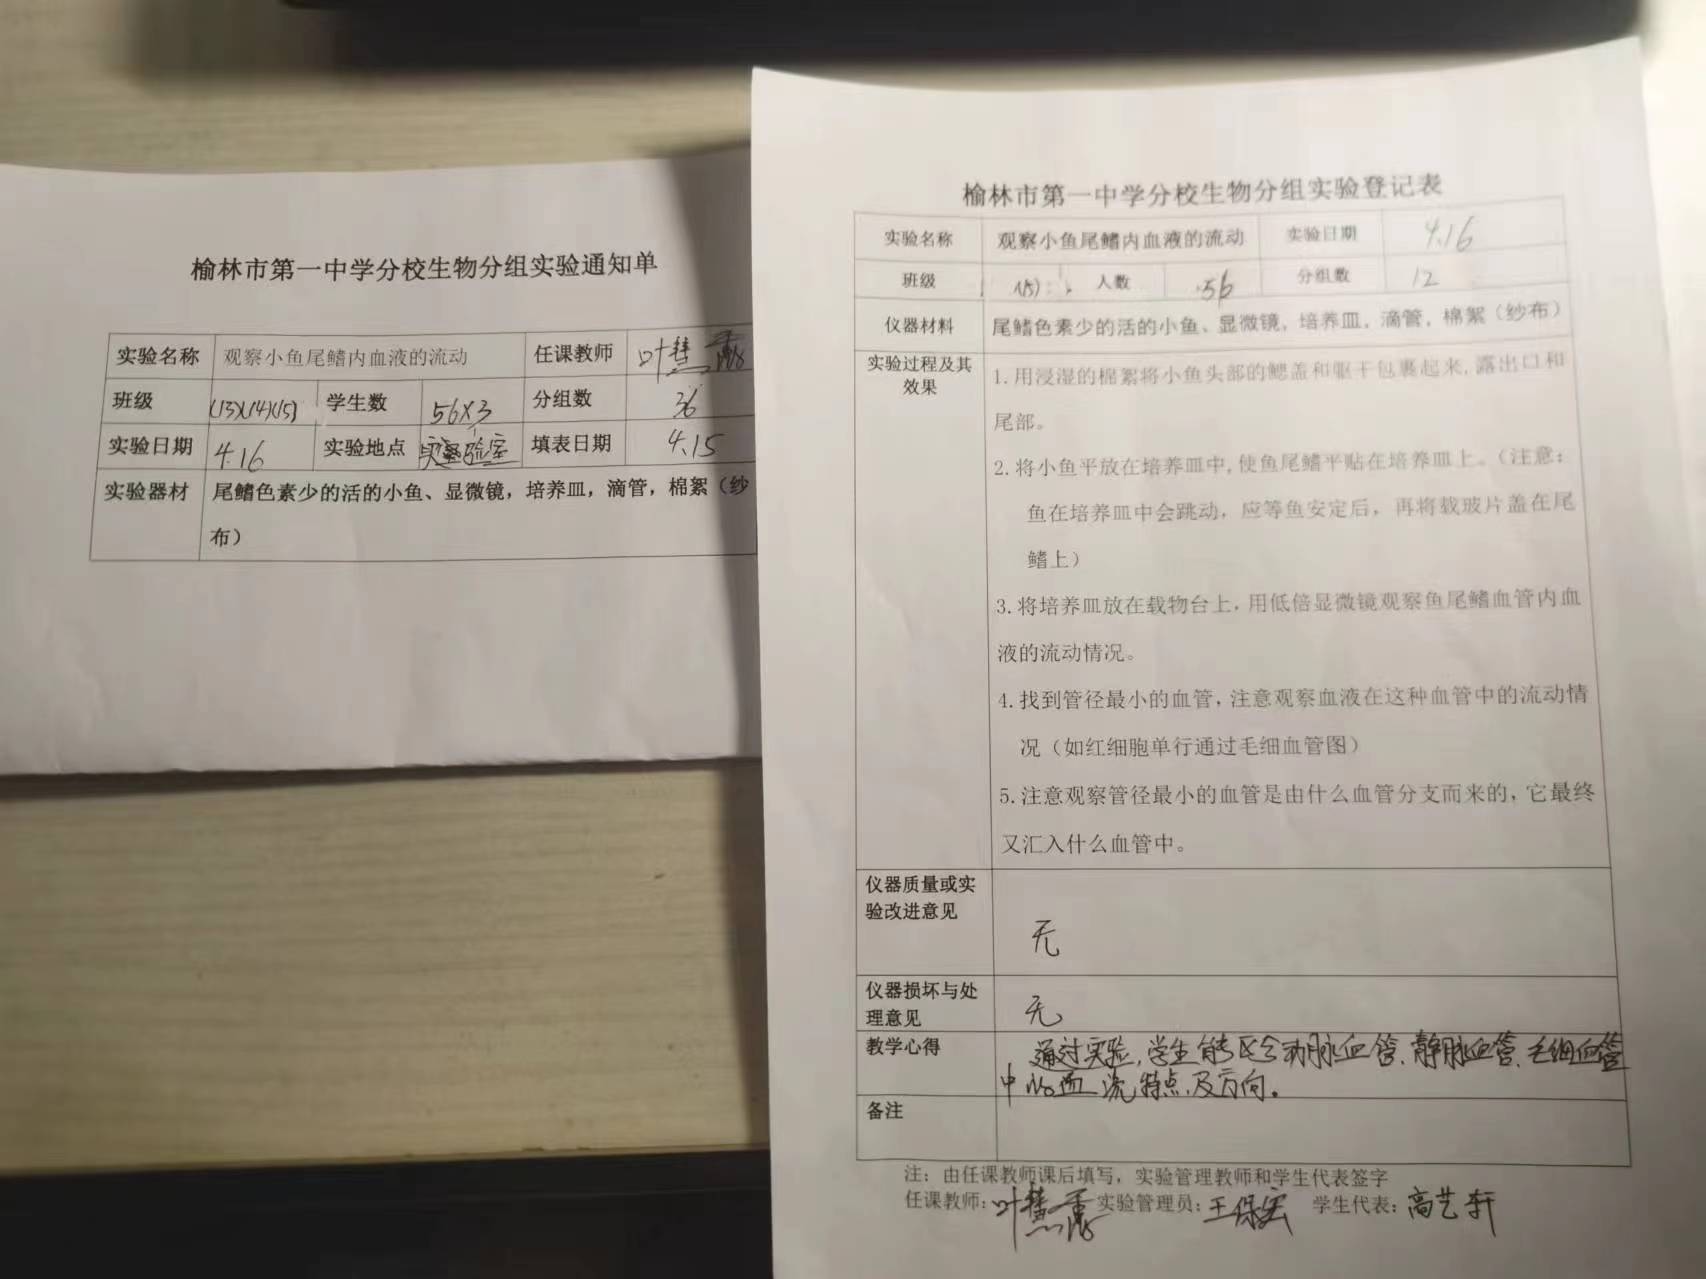 榆林市第一中学分校生物分组实验通知单
实验名称 观察小鱼尾鳍内血液的流动 任课教师 叶慧
班级 (13)(14)(15) 学生数 56×3 分组数 36
实验日期 4.16 实验地点 实验室 填表日期 4.15
实验器材 尾鳍色素少的活的小鱼、显微镜，培养皿，滴管，棉絮（纱
布）
榆林市第一中学分校生物分组实验登记表
实验名称 观察小鱼尾鳍内血液的流动 实验日期 4.16
班级 (15) 人数 56 分组数 12
仪器材料 尾鳍色素少的活的小鱼、显微镜，培养皿，滴管，棉絮（纱布）
实验过程及其
效果
1.用浸湿的棉絮将小鱼头部的鳃盖和躯干包裹起来,露出口和
尾部。
2.将小鱼平放在培养皿中,使鱼尾鳍平贴在培养皿上。（注意：
鱼在培养皿中会跳动，应等鱼安定后，再将载玻片盖在尾
鳍上）
3.将培养皿放在载物台上，用低倍显微镜观察鱼尾鳍血管内血
液的流动情况。
4.找到管径最小的血管，注意观察血液在这种血管中的流动情
况（如红细胞单行通过毛细血管图）
5.注意观察管径最小的血管是由什么血管分支而来的，它最终
又汇入什么血管中。
仪器质量或实
验改进意见
无
仪器损坏与处
理意见
无
教学心得 通过实验,学生能区分动脉血管、静脉血管、毛细血管
中的血流特点及方向。
备注
注：由任课教师课后填写，实验管理教师和学生代表签字
任课教师：叶慧 实验管理员：王保宏 学生代表：高艺轩